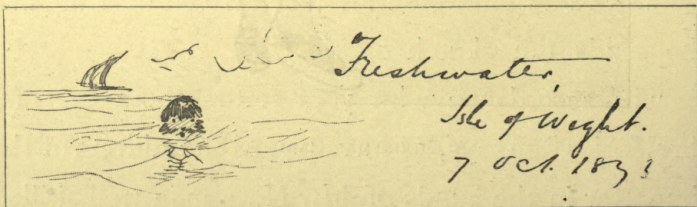 Freshwater,
Isle of Wight.
7 Oct. 1893